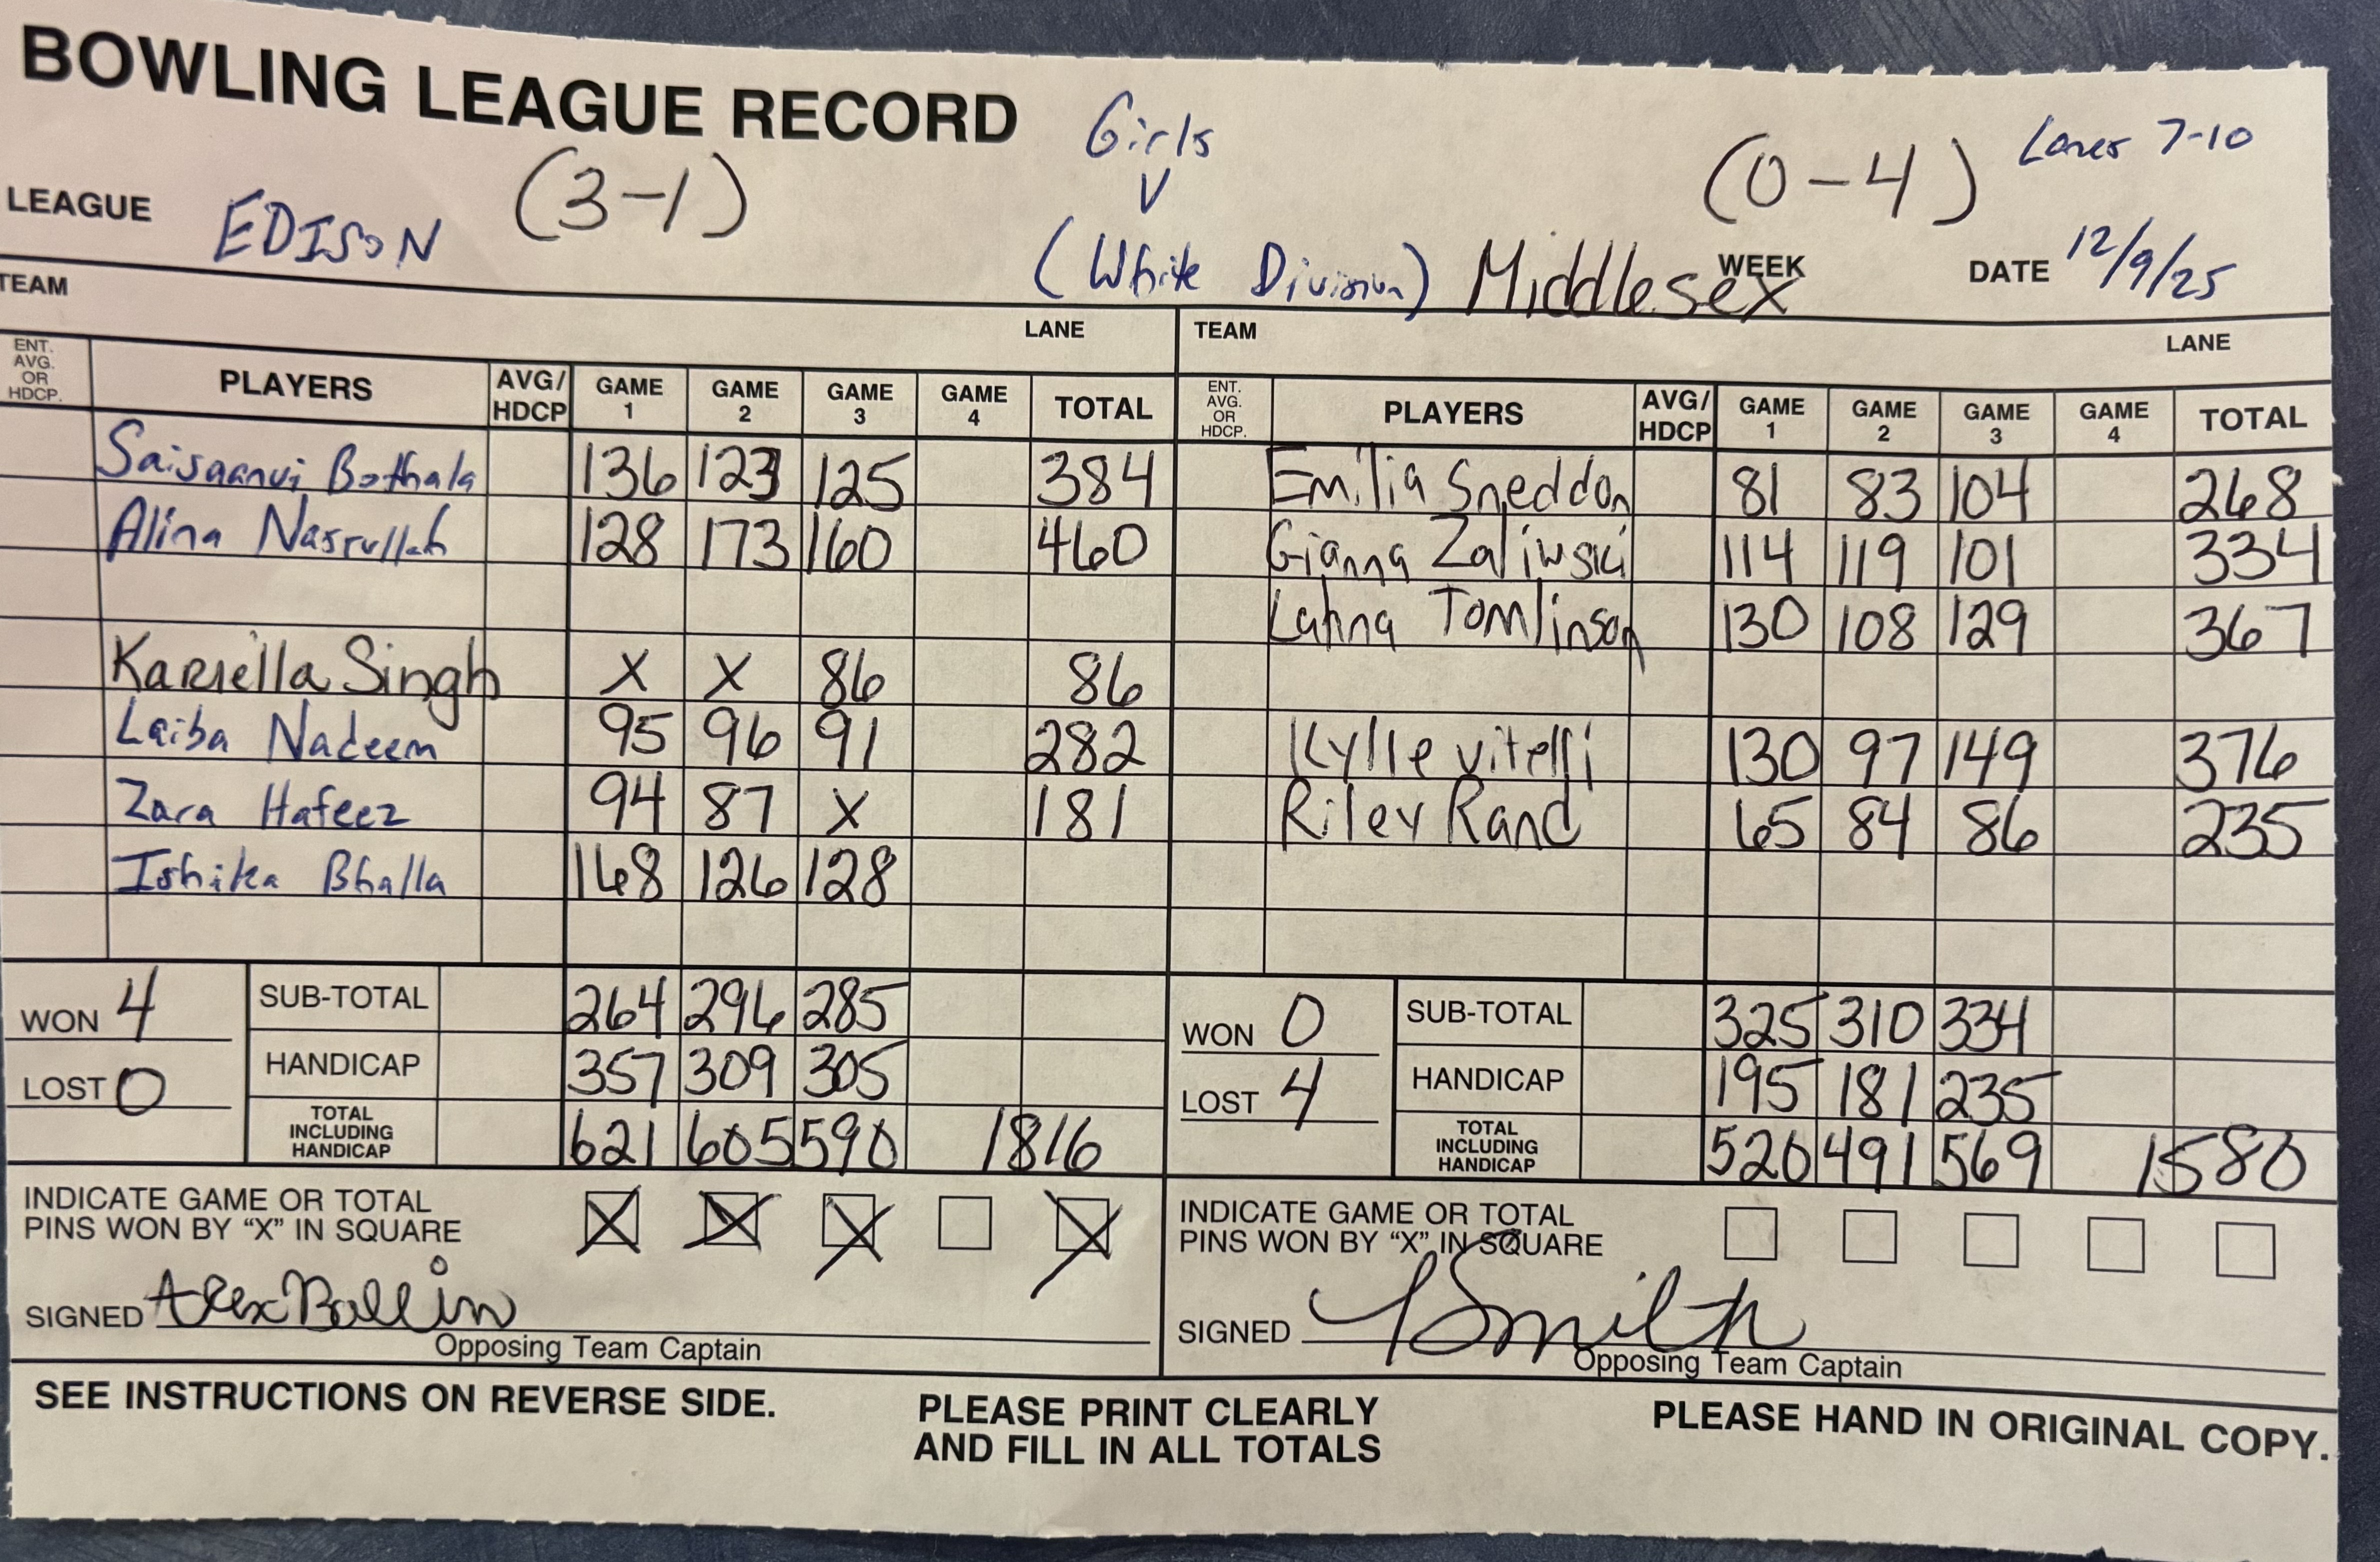 BOWLING LEAGUE RECORD
Girls
V
(3-1)
(0-4)
Lanes 7-10
LEAGUE EDISON
(White Division) Middlesex
WEEK
DATE 12/9/25
TEAM
LANE
TEAM
LANE
ENT. AVG. OR HDCP. PLAYERS AVG/HDCP GAME 1 GAME 2 GAME 3 GAME 4 TOTAL
Saisaanvi Bothala 136 123 125 384
Alina Nasrullah 128 173 160 460
Kariella Singh X X 86 86
Laiba Nadeem 95 96 91 282
Zara Hafeez 94 87 X 181
Ishika Bhalla 168 126 128
WON 4
LOST 0
SUB-TOTAL 264 296 285
HANDICAP 357 309 305
TOTAL INCLUDING HANDICAP 621 605 590 1816
INDICATE GAME OR TOTAL
PINS WON BY “X” IN SQUARE X X X X
SIGNED Alex Ballin
Opposing Team Captain
ENT. AVG. OR HDCP. PLAYERS AVG/HDCP GAME 1 GAME 2 GAME 3 GAME 4 TOTAL
Emilia Sneddon 81 83 104 268
Gianna Zaliwski 114 119 101 334
Lahna Tomlinson 130 108 129 367
Kylie vitelli 130 97 149 376
Riley Rand 65 84 86 235
WON 0
LOST 4
SUB-TOTAL 325 310 334
HANDICAP 195 181 235
TOTAL INCLUDING HANDICAP 520 491 569 1580
INDICATE GAME OR TOTAL
PINS WON BY “X” IN SQUARE
SIGNED Smith
Opposing Team Captain
SEE INSTRUCTIONS ON REVERSE SIDE.
PLEASE PRINT CLEARLY
AND FILL IN ALL TOTALS
PLEASE HAND IN ORIGINAL COPY.